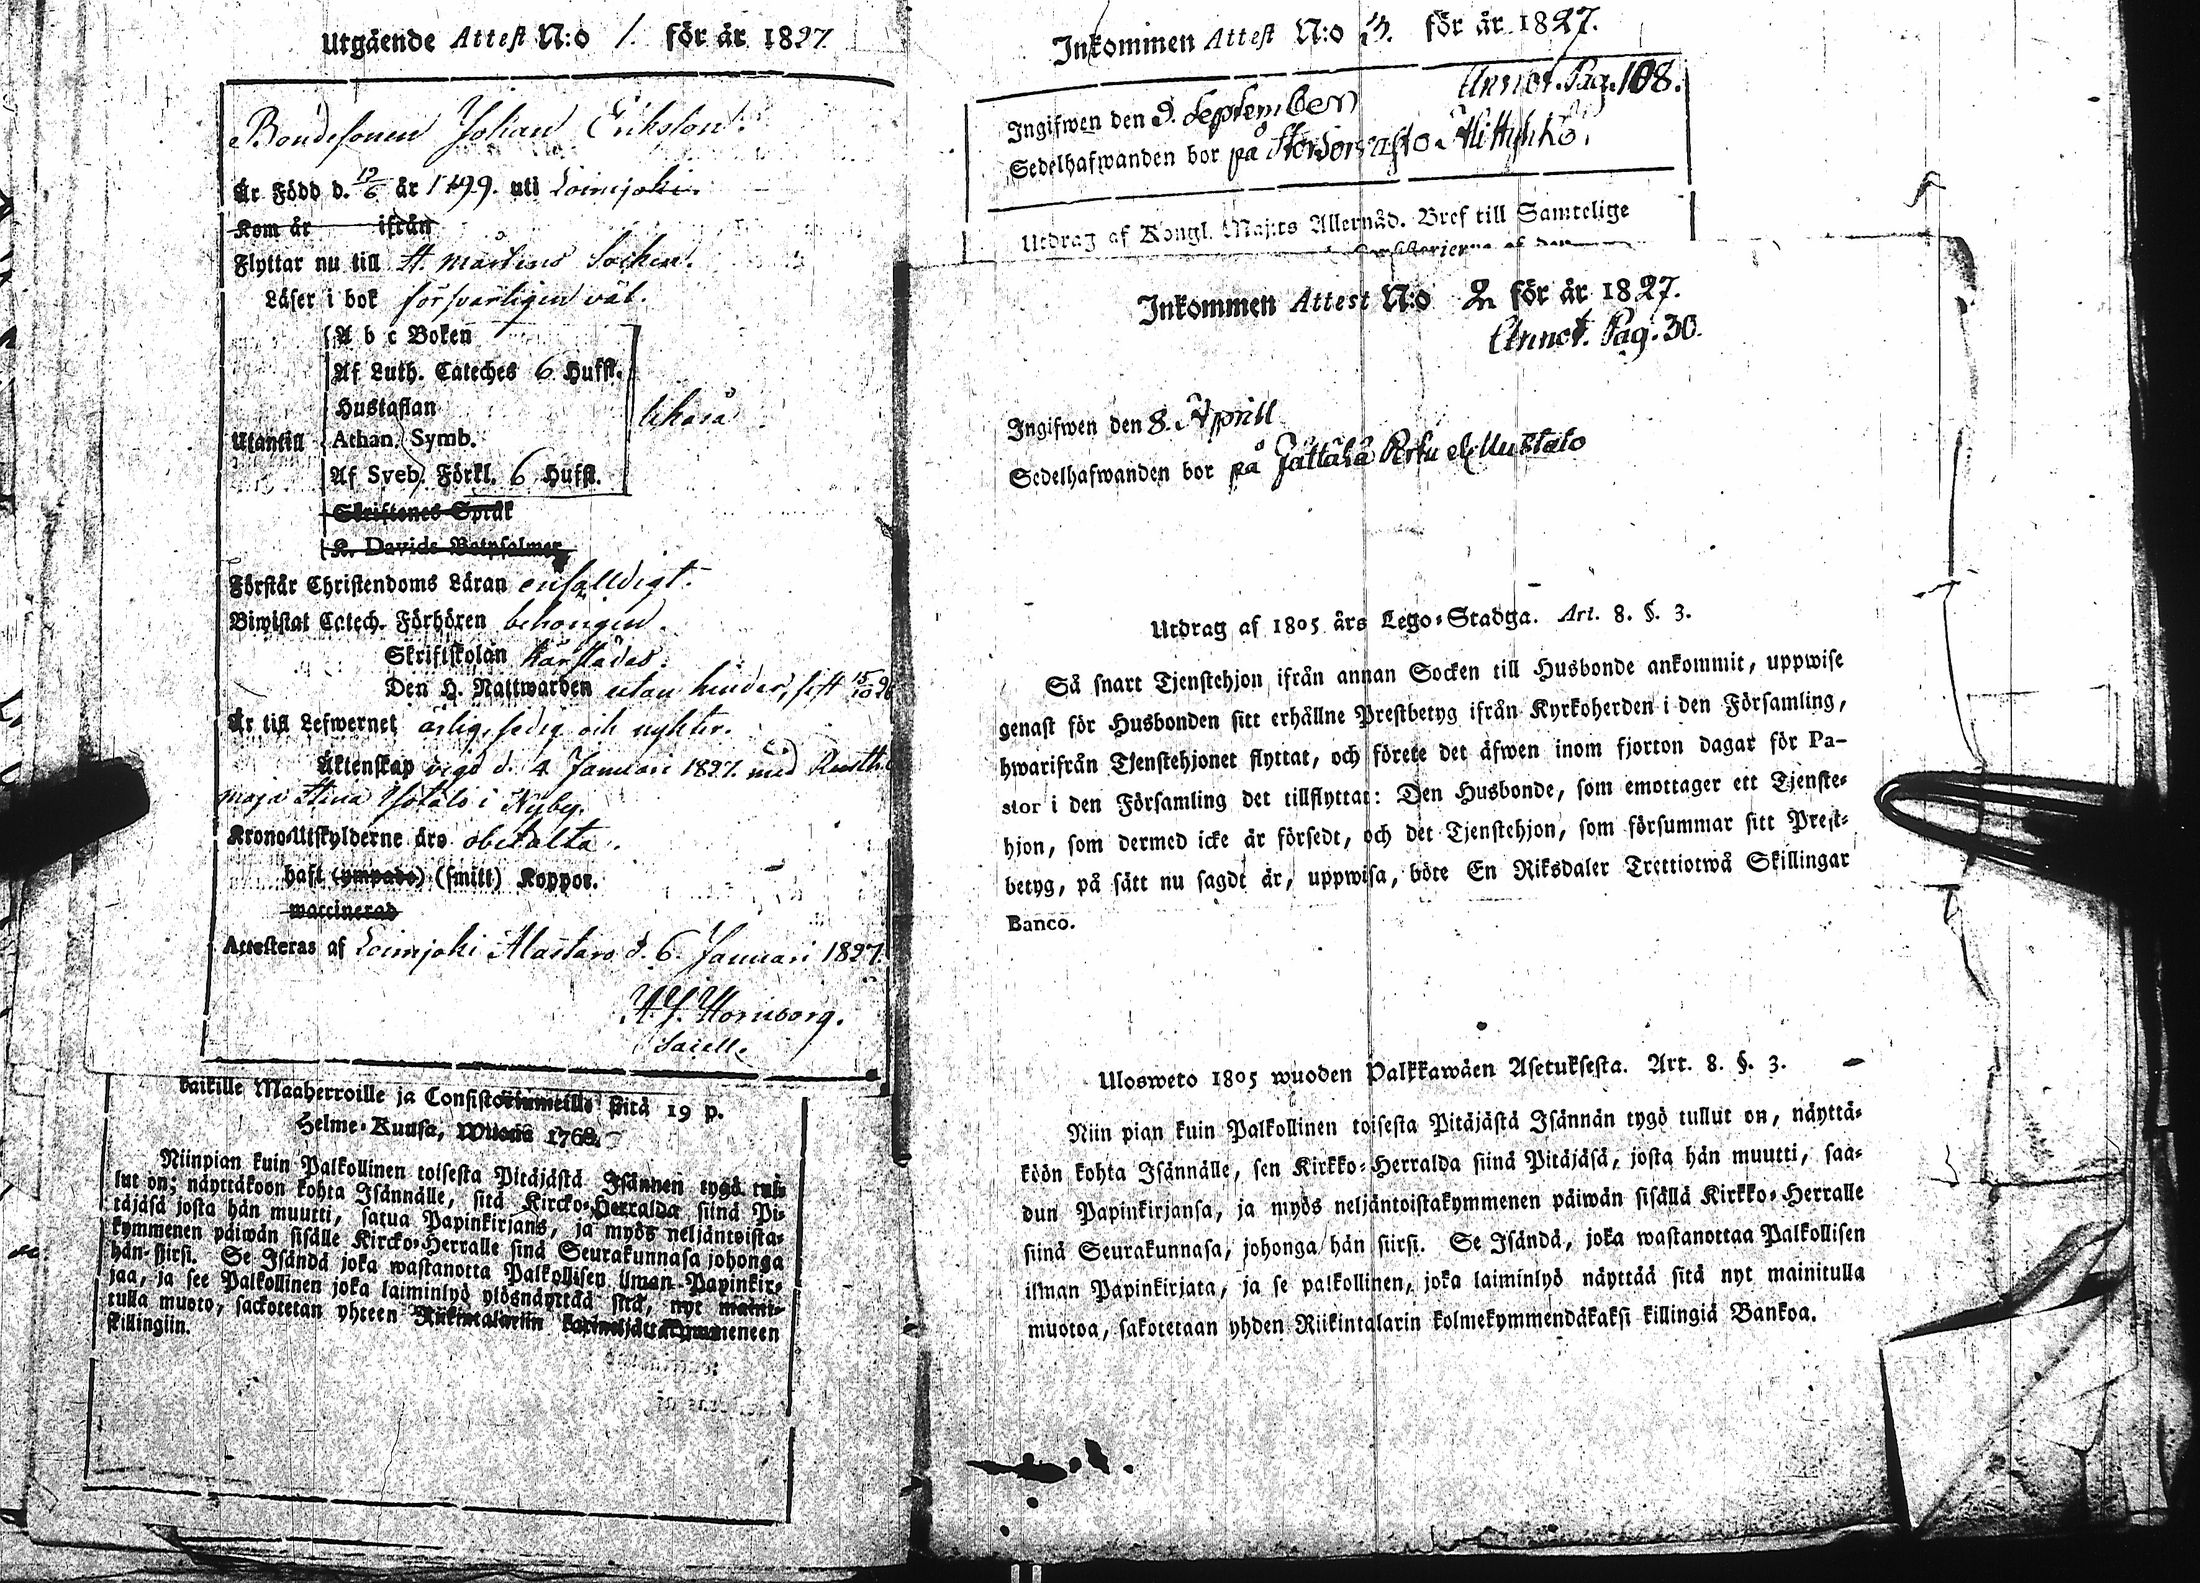 Utgående Attest N:o 1. för år 1827
Bondesonen Johan Erikson.
Är Född d. 19/6 år 1799. uti Loimjoki.
Kom år ifrån
Flyttar nu till St. Mårtens Socken.
Läser i bok försvarligen väl.
Utantill
A b c Boken
Af Luth. Cateches 6 Hufst.
Hustaflan
Athan. Symb.
Af Sveb. Förkl. 6 Hufst.
Skriftenes Språk
K. Davids Botpsalmer
Förstår Christendoms Läran enfalldigt.
Biwistat Catech. Förhören behörigen.
Skriftskolan
Den H. Nattwarden utan hinder, sist 15/10 26
Är till Lefwernet ärlig, sedig och nykter.
Äktenskap vigd d. 4 Januari 1827. med
Maja Stina i Nyby.
Krono-Utskylderne äro obetalta.
haft (ympade) (smitt) Koppor.
waccinerad
Attesteras af Loimjoki Alastaro d. 6. Januari 1827.
Hornborg.
Sacell.
kaikille Maaherroille ja Consistoriumeille sitä 19 p.
Helme-Kuusa, Wuona 1768.
Niinpian kuin Palkollinen toisesta Pitäjästä Isännen tygö tul-
lut on; näyttäkoon kohta Isännälle, sitä Kircko-Herralda siinä Pi-
täjäsä josta hän muutti, satua Papinkirjans, ja myös neljäntoista-
kymmenen päiwän sisälle Kircko-Herralle sinä Seurakunnasa johonga
hän siirsi. Se Isändä joka wastanotta Palkollisen ilman Papinkir-
jaa, ja see Palkollinen joka laiminlyö ylösnäyttää sitä, nyt maini-
tulla muoto, sackotetan yhteen Riikintalariin kolmeljättäkymmeneen
skillingiin.
Inkommen Attest N:o för år 1827.
Annot. Pag. 108.
Ingifwen den 9. September
Sedelhafwanden bor på
Utdrag af Kongl. Maj:ts Allernåd. Bref till Samtelige
Inkommen Attest N:o 2 för år 1827.
Annot. Pag. 30.
Ingifwen den 8. Aprill
Sedelhafwanden bor på Jättälä
Utdrag af 1805 års Lego-Stadga. Art. 8. §. 3.
Så snart Tjenstehjon ifrån annan Socken till Husbonde ankommit, uppwise
genast för Husbonden sitt erhållne Prestbetyg ifrån Kyrkoherden i den Församling,
hwarifrån Tjenstehjonet flyttat, och förete det äfwen inom fjorton dagar för Pa-
stor i den Församling det tillflyttat: Den Husbonde, som emottager ett Tjenste-
hjon, som dermed icke är försedt, och det Tjenstehjon, som försummar sitt Prest-
betyg, på sätt nu sagdt är, uppwisa, böte En Riksdaler Trettiotwå Skillingar
Banco.
Ulosweto 1805 wuoden Palkkawäen Asetuksesta. Art. 8. §. 3.
Niin pian kuin Palkollinen toisesta Pitäjästä Isännän tygö tullut on, näyttä-
köön kohta Isännälle, sen Kirkko-Herralda siinä Pitäjäsä, josta hän muutti, saa-
dun Papinkirjansa, ja myös neljäntoistakymmenen päiwän sisällä Kirkko-Herralle
siinä Seurakunnasa, johonga hän siirsi. Se Isändä, joka wastanottaa Palkollisen
ilman Papinkirjata, ja se palkollinen, joka laiminlyö näyttää sitä nyt mainitulla
muotoa, sakotetaan yhden Riikintalarin kolmekymmendäkaksi killingiä Bankoa.